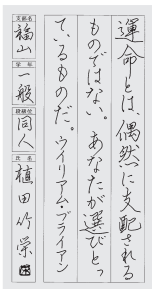 運命とは、偶然に支配される
ものではない。あなたが選びとっ
ているものだ。ウイリアム・ブライアン
支部名
福山
学年
一般
段級位
同人
氏名
植田竹栄